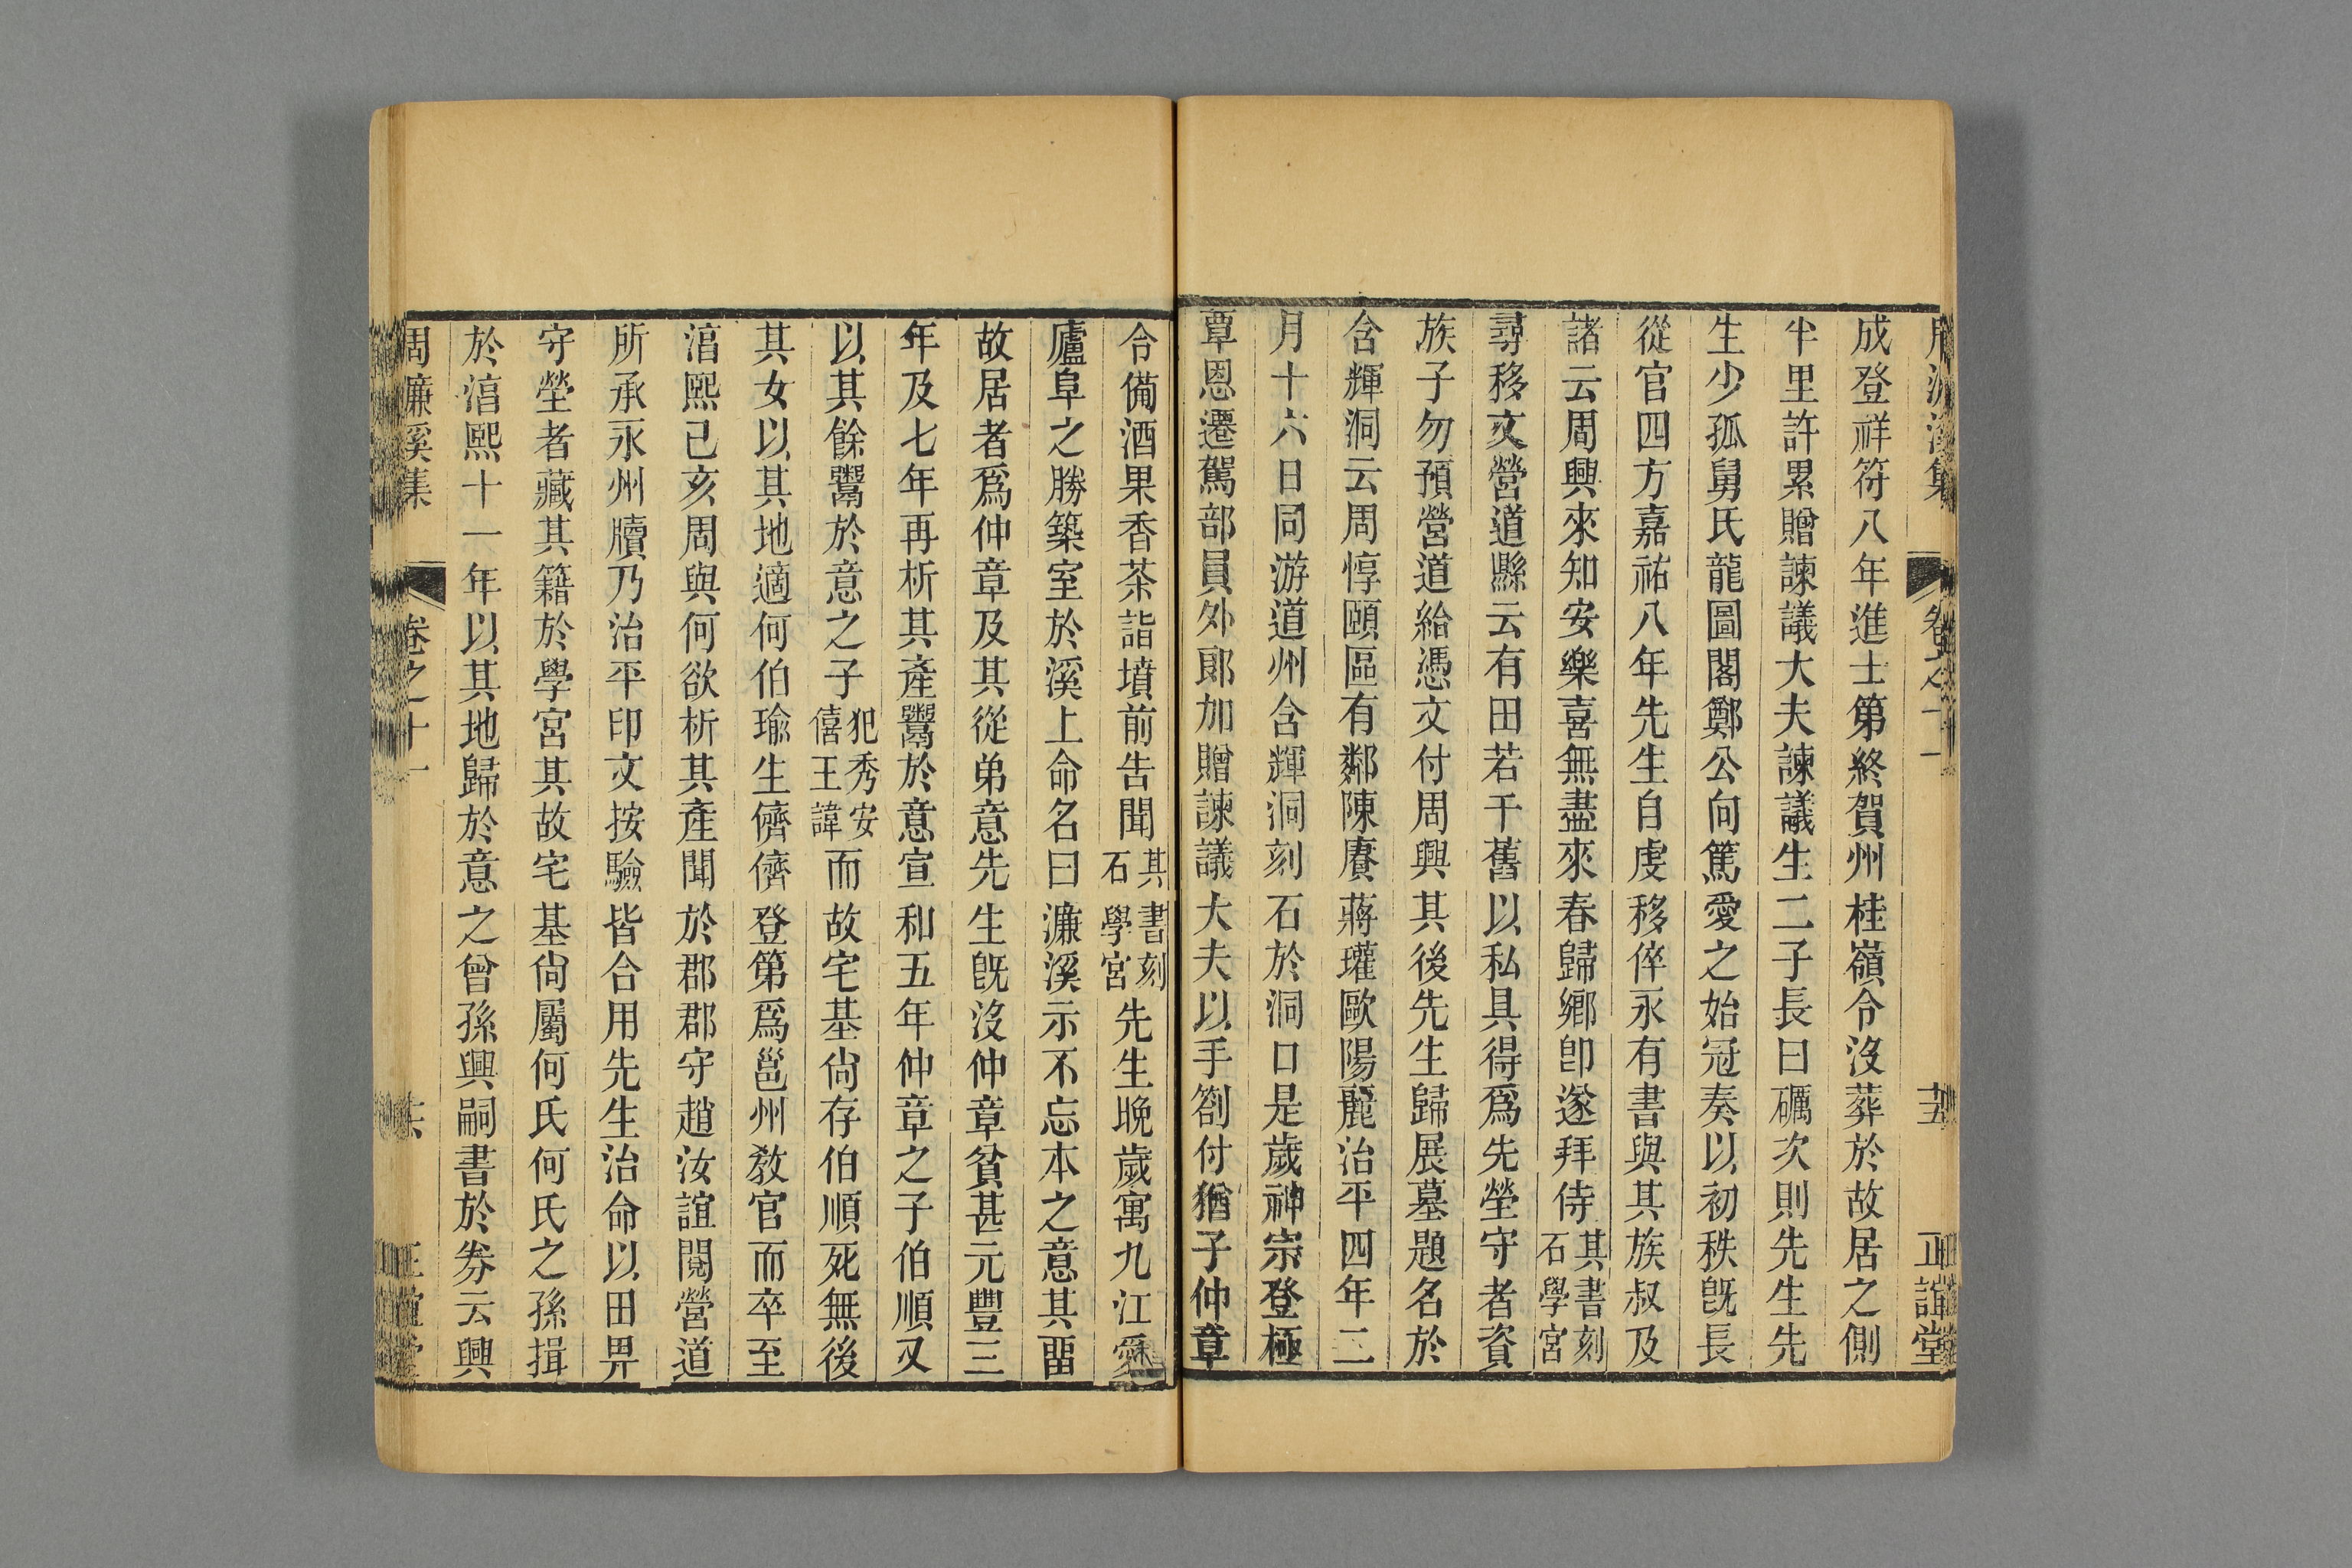 周濂溪集 卷之十一 十五 正誼堂
成登祥符八年進士第終賀州桂嶺令沒葬於故居之側
半里許累贈諫議大夫諫議生二子長曰礪次則先生先
生少孤舅氏龍圖閣鄭公向篤愛之始冠奏以初秩旣長
從官四方嘉祐八年先生自虔移倅永有書與其族叔及
諸云周興來知安樂喜無盡來春歸鄉卽遂拜侍其書刻石學宮
尋移文營道縣云有田若干舊以私具得爲先塋守者資
族子勿預營道給憑文付周興其後先生歸展墓題名於
含輝洞云周惇頤區有鄰陳賡蔣瓘歐陽麗治平四年二
月十六日同游道州含輝洞刻石於洞口是歲神宗登極
覃恩遷駕部員外郎加贈諫議大夫以手劄付猶子仲章
令備酒果香茶詣墳前告聞其書刻石學宮先生晚歲寓九江愛
廬阜之勝築室於溪上命名曰濂溪示不忘本之意其畱
故居者爲仲章及其從弟意先生旣沒仲章貧甚元豐三
年及七年再析其產鬻於意宣和五年仲章之子伯順又
以其餘鬻於意之子犯秀安僖王諱而故宅基尙存伯順死無後
其女以其地適何伯瑜生儕儕登第爲邕州敎官而卒至
淯熙己亥周與何欲析其產聞於郡郡守趙汝誼閱營道
所承永州牘乃治平印文按驗皆合用先生治命以田畀
守塋者藏其籍於學宮其故宅基尙屬何氏何氏之孫揖
於淯熙十一年以其地歸於意之曾孫興嗣書於券云興
周濂溪集 卷之十一 十六 正誼堂